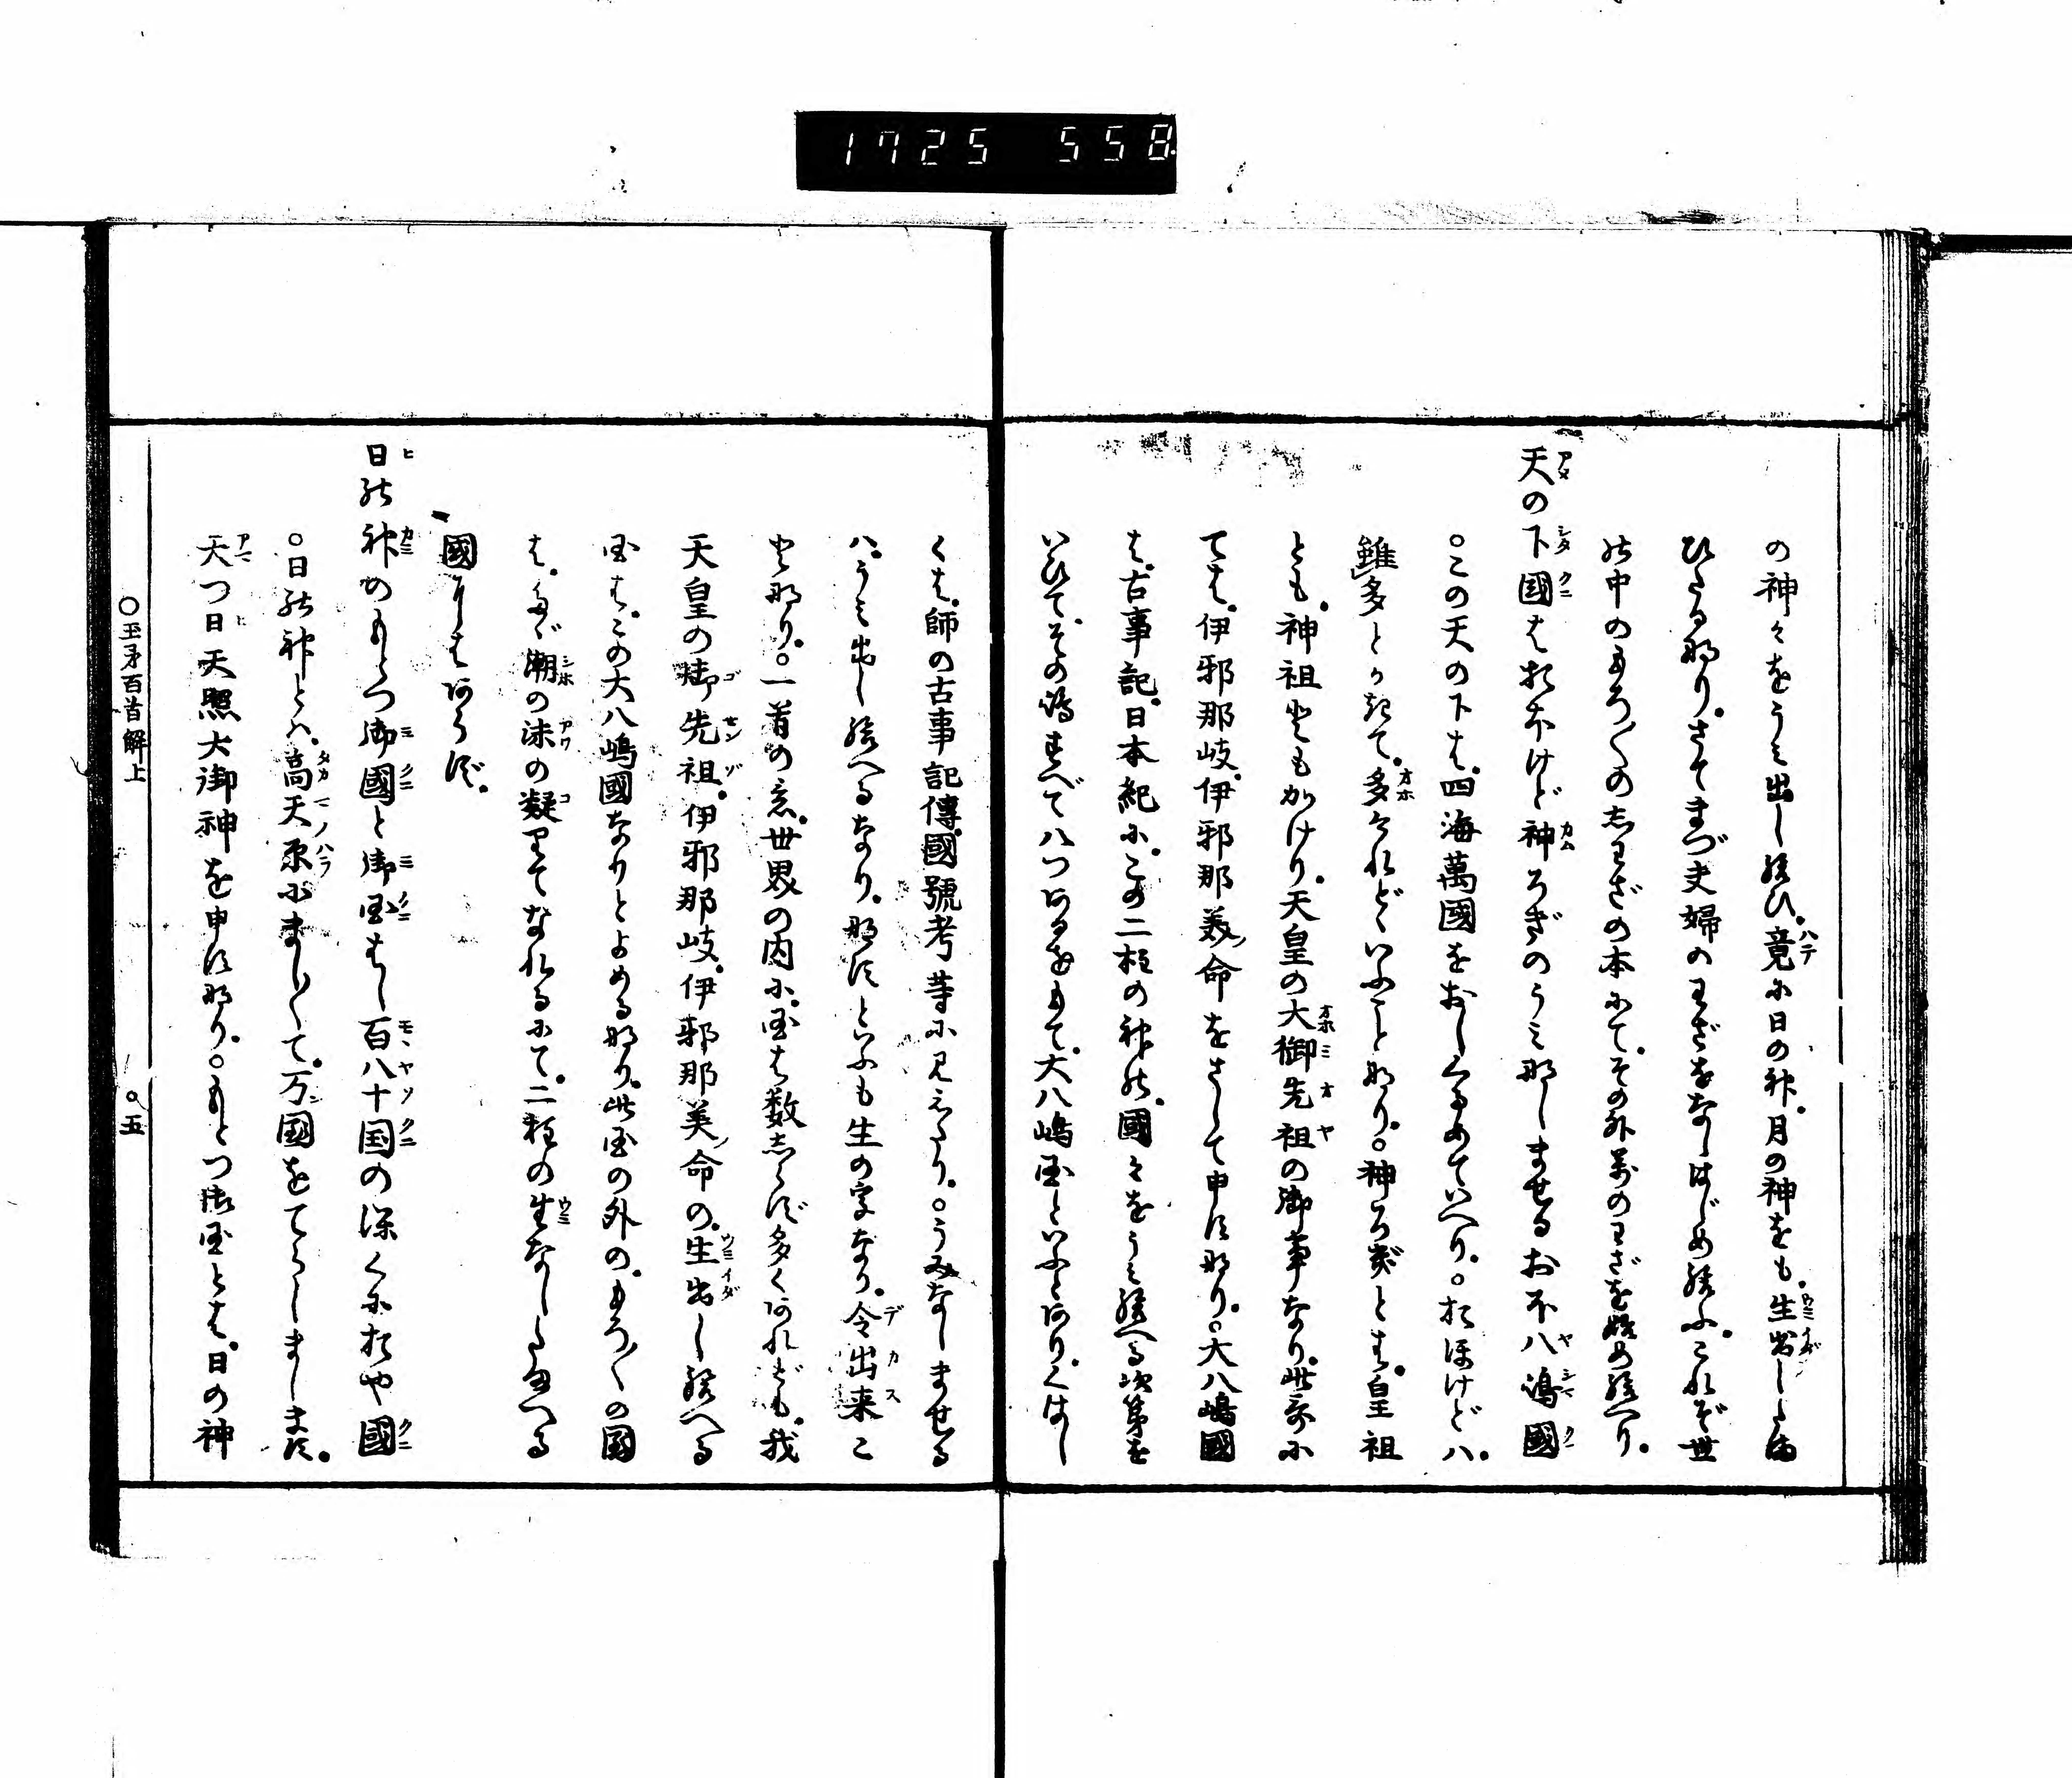 1725 558
の神々をうミ出し給ひ。竟に日の神。月の神をも。生出したま
ひたる那り。さてまづ夫婦のわざをなしはじめ給ふ。これぞ世
の中のもろ〳〵の志わざの本にて。その外萬のわざを始め給へり。
天の下國はおほけど神ろぎのうミ那しませるおほ八嶋國
○この天の下は。四海萬國をおしくるめていへり。○おほけどハ。
雖多とかきて。多けれどゝいふこと那り。○神ろぎとは。皇祖
とも。神祖ともかけり。天皇の大御先祖の御事なり。此歌に
ては。伊邪那岐。伊邪那美ノ命をさして申す那り。○大八嶋國
は。古事記。日本紀に。この二柱の神の。國々をうミ給へる次第を
いひて。その嶋すべて八つあるをもて。大八嶋国といふとあり。くはし
くは。師の古事記傳。國號考等に見えたり。○うみなしませる
ハ。うミ出し給へるなり。那すといふも生の字なり。令出来こ
と那り。○一首の意。世界の内に。国は数志らず多くあれども。我
天皇の御先祖。伊邪那岐。伊邪那美ノ命の。生出し給へる
国は。この大八嶋國なりとよめる那り。此国の外の。もろ〳〵の国
は。たゞ潮の沫の凝りてなれるにて。二柱の生なしたまへる
國にはあらず。
日の神のもとつ御國と御国はし百八十国の深くにおや國
○日の神とハ。高天原にまし〳〵て。万国をてらしまします。
天つ日天照大御神を申す那り。○もとつ御国とは。日の神
○玉矛百首解上
○五